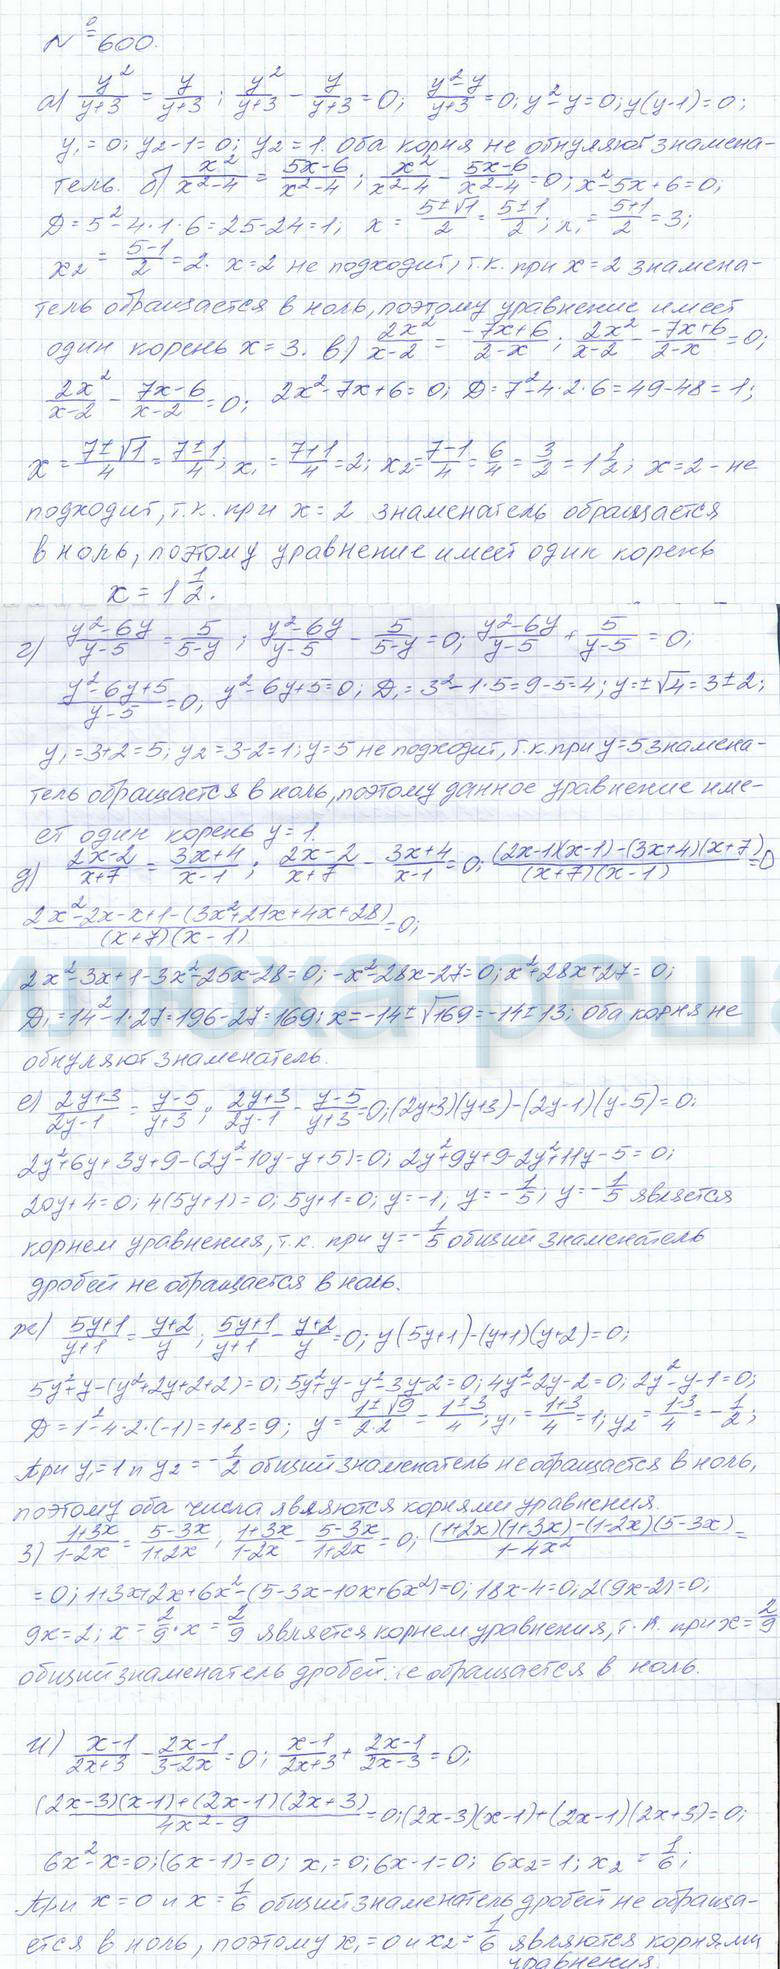 № 600.
а) y²/(y+3) = y/(y+3); y²/(y+3) - y/(y+3) = 0; (y²-y)/(y+3) = 0; y²-y=0; y(y-1)=0;
y₁=0; y₂-1=0; y₂=1. Оба корня не обнуляют знамена-
тель. б) x²/(x²-4) = (5x-6)/(x²-4); x²/(x²-4) - (5x-6)/(x²-4) = 0; x²-5x+6=0;
D=5²-4·1·6=25-24=1; x = (5±√1)/2 = (5±1)/2; x₁ = (5+1)/2 = 3;
x₂ = (5-1)/2 = 2. x=2 не подходит, т.к. при x=2 знамена-
тель обращается в ноль, поэтому уравнение имеет
один корень x=3. в) 2x²/(x-2) = (-7x+6)/(2-x); 2x²/(x-2) - (-7x+6)/(2-x) = 0;
2x²/(x-2) - (7x-6)/(x-2) = 0; 2x²-7x+6=0; D=7²-4·2·6=49-48=1;
x = (7±√1)/4 = (7±1)/4; x₁ = (7+1)/4 = 2; x₂ = (7-1)/4 = 6/4 = 3/2 = 1 1/2; x=2 - не
подходит, т.к. при x=2 знаменатель обращается
в ноль, поэтому уравнение имеет один корень
x = 1 1/2.
г) (y²-6y)/(y-5) = 5/(5-y); (y²-6y)/(y-5) - 5/(5-y) = 0; (y²-6y)/(y-5) + 5/(y-5) = 0;
(y²-6y+5)/(y-5) = 0; y²-6y+5=0; D₁=3²-1·5=9-5=4; y=±√4=3±2;
y₁=3+2=5; y₂=3-2=1; y=5 не подходит, т.к. при y=5 знамена-
тель обращается в ноль, поэтому данное уравнение име-
ет один корень y=1.
д) (2x-2)/(x+7) = (3x+4)/(x-1); (2x-2)/(x+7) - (3x+4)/(x-1) = 0; ((2x-1)(x-1)-(3x+4)(x+7))/((x+7)(x-1)) = 0
(2x²-2x-x+1-(3x²+21x+4x+28))/((x+7)(x-1)) = 0;
2x²-3x+1-3x²-25x-28=0; -x²-28x-27=0; x²+28x+27=0;
D₁=14²-1·27=196-27=169; x=-14±√169=-14±13; оба корня не
обнуляют знаменатель.
е) (2y+3)/(2y-1) = (y-5)/(y+3); (2y+3)/(2y-1) - (y-5)/(y+3) = 0; (2y+3)(y+3)-(2y-1)(y-5)=0;
2y²+6y+3y+9-(2y²-10y-y+5)=0; 2y²+9y+9-2y²+11y-5=0;
20y+4=0; 4(5y+1)=0; 5y+1=0; y=-1; y=-1/5; y=-1/5 является
корнем уравнения, т.к. при y=-1/5 общий знаменатель
дробей не обращается в ноль.
ж) (5y+1)/(y+1) = (y+2)/y; (5y+1)/(y+1) - (y+2)/y = 0; y(5y+1)-(y+1)(y+2)=0;
5y²+y-(y²+2y+2+2)=0; 5y²+y-y²-3y-2=0; 4y²-2y-2=0; 2y²-y-1=0;
D=1²-4·2·(-1)=1+8=9; y = (1±√9)/(2·2) = (1±3)/4; y₁ = (1+3)/4 = 1; y₂ = (1-3)/4 = -1/2;
При y₁=1 и y₂=-1/2 общий знаменатель не обращается в ноль,
поэтому оба числа являются корнями уравнения.
з) (1+3x)/(1-2x) = (5-3x)/(1+2x); (1+3x)/(1-2x) - (5-3x)/(1+2x) = 0; ((1+2x)(1+3x)-(1-2x)(5-3x))/(1-4x²) =
= 0; 1+3x+2x+6x²-(5-3x-10x+6x²)=0; 18x-4=0; 2(9x-2)=0;
9x=2; x=2/9. x=2/9 является корнем уравнения, т.к. при x=2/9
общий знаменатель дробей не обращается в ноль.
и) (x-1)/(2x+3) - (2x-1)/(3-2x) = 0; (x-1)/(2x+3) + (2x-1)/(2x-3) = 0;
((2x-3)(x-1)+(2x-1)(2x+3))/(4x²-9) = 0; (2x-3)(x-1)+(2x-1)(2x+3)=0;
6x²-x=0; (6x-1)=0; x₁=0; 6x-1=0; 6x₂=1; x₂=1/6;
При x=0 и x=1/6 общий знаменатель дробей не обраща-
ется в ноль, поэтому x₁=0 и x₂=1/6 являются корнями
уравнения.